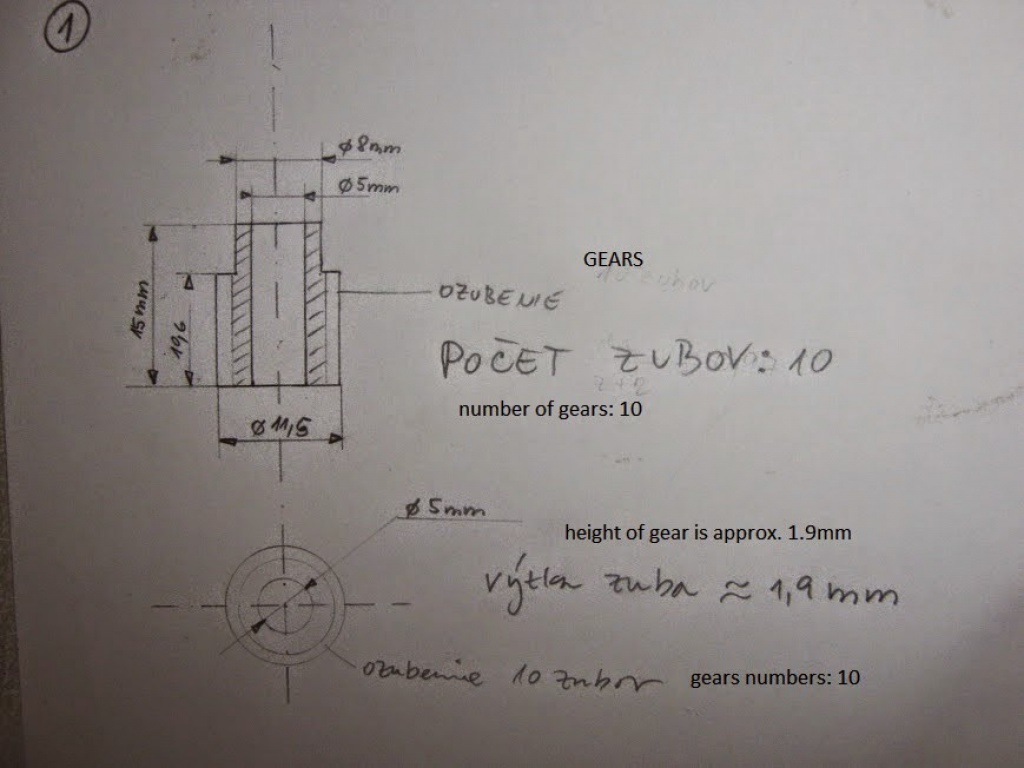 1
ø 8mm
ø 5mm
GEARS
OZUBENIE
15mm
10,6
POČET ZUBOV: 10
z+2
number of gears: 10
ø 11,5
ø 5mm
height of gear is approx. 1.9mm
výška zuba ≈ 1,9 mm
ozubenie 10 zubov
gears numbers: 10